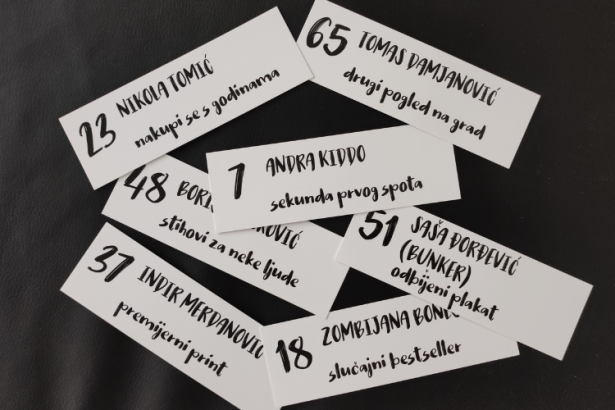 65 TOMAS DAMJANOVIĆ
drugi pogled na grad
23 NIKOLA TOMIĆ
nakupi se s godinama
7 ANDRA KIDDO
sekunda prvog spota
48
stihovi za neke ljude
51 SAŠA ĐORĐEVIĆ
(BUNKER)
odbijeni plakat
37 INDIR MERDANOVIĆ
premijerni print
18 ZOMBIJANA
slučajni bestseller